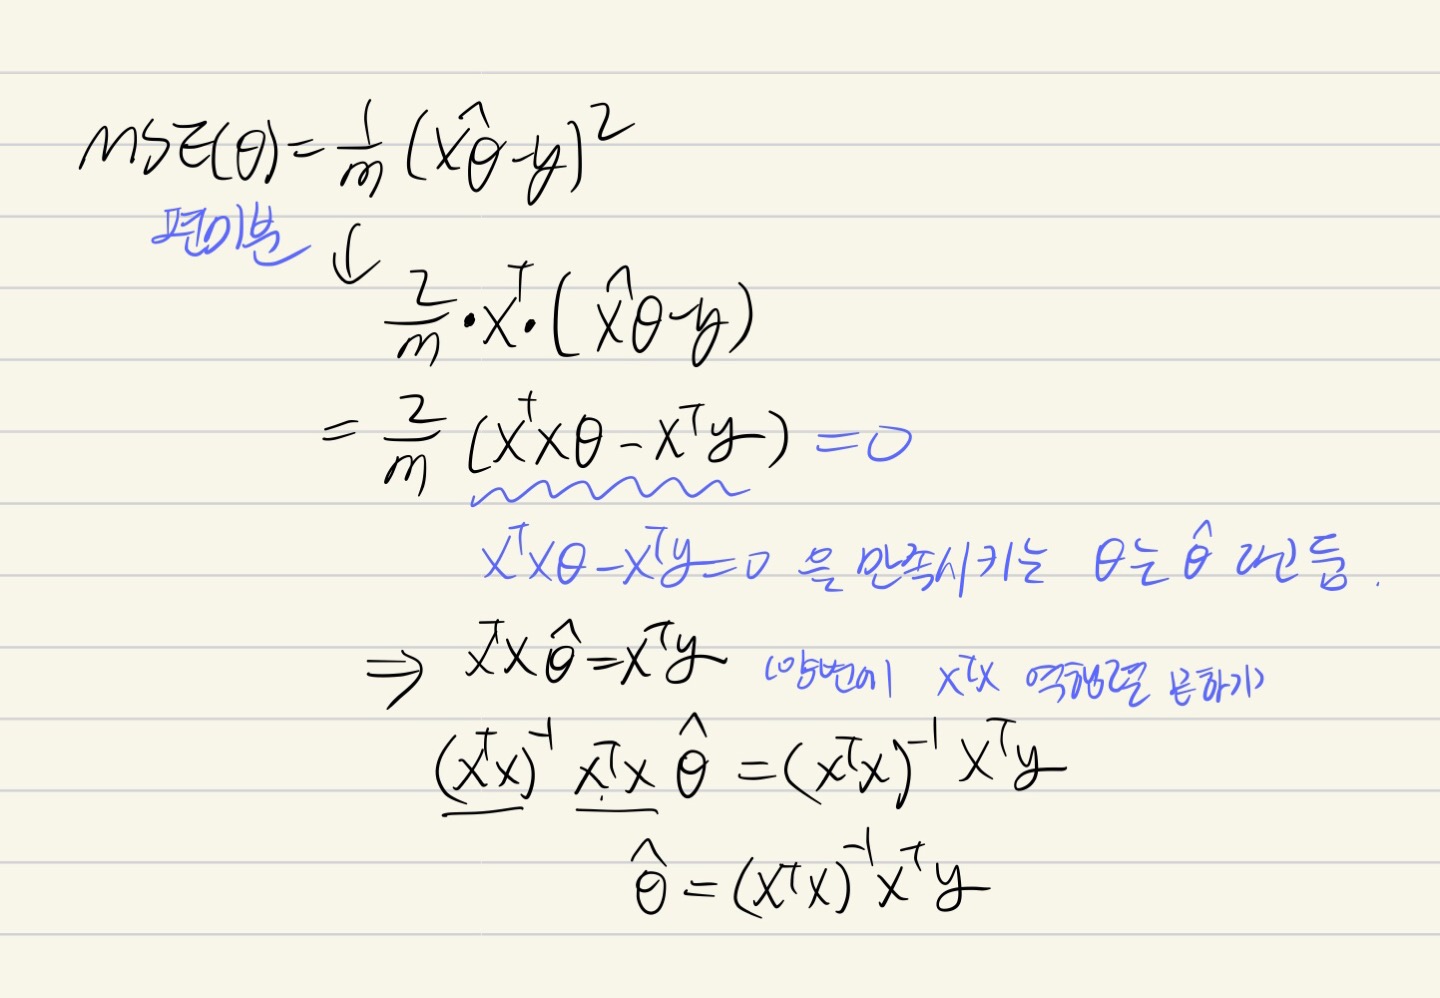 MSE(θ) = 1/m (Xθ̂ - y)²
편미분 ↓
2/m · Xᵀ · (X̂θ - y)
= 2/m (XᵀXθ - Xᵀy) = 0
XᵀXθ - Xᵀy = 0 을 만족시키는 θ는 θ̂ 라고 둠.
⇒ XᵀXθ̂ = Xᵀy (양변에 XᵀX 역행렬 곱하기)
(XᵀX)⁻¹ XᵀX θ̂ = (XᵀX)⁻¹ Xᵀy
θ̂ = (XᵀX)⁻¹Xᵀy